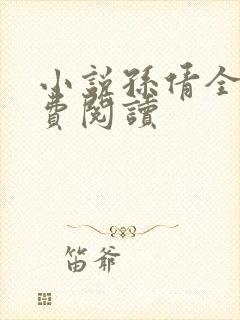 小説孫倩全
費閱讀
笛爺